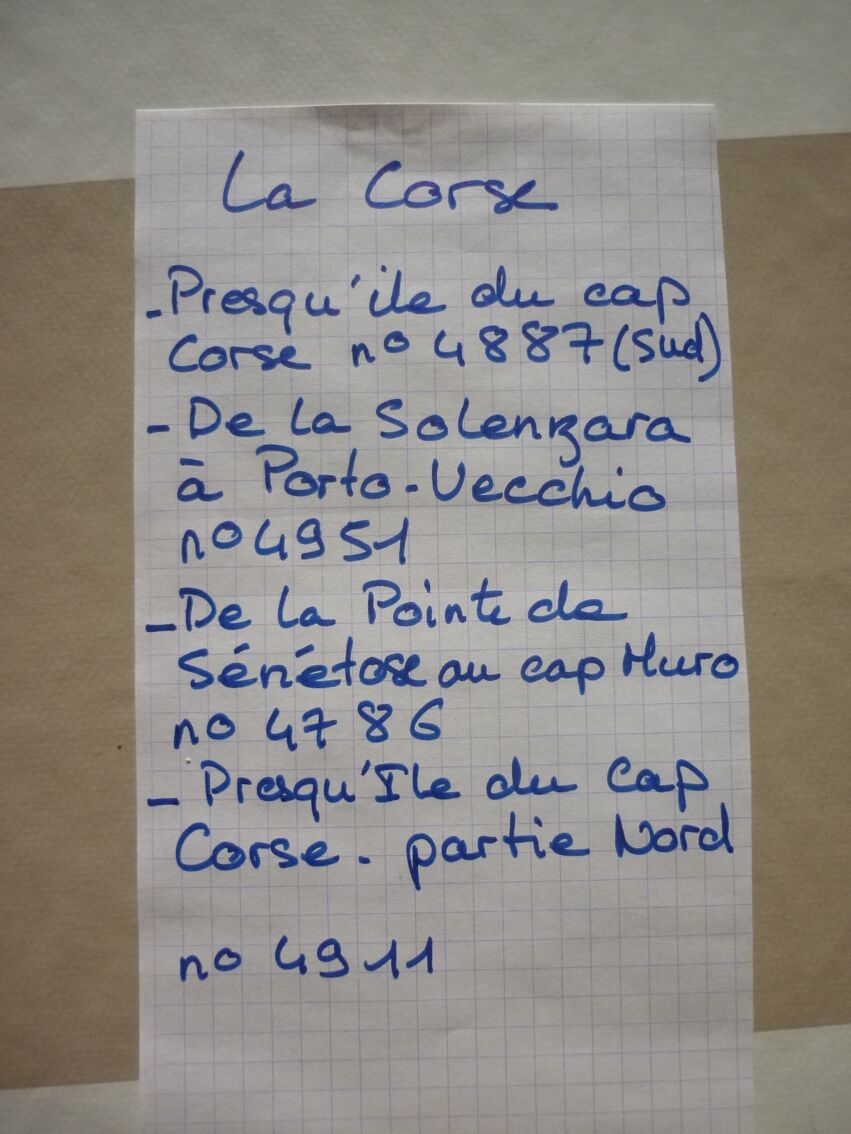 La Corse
- Presqu'ile du cap
Corse n° 4887 (Sud)
- De la Solenzara
à Porto-Vecchio
n° 4951
- De la Pointe de
Sénétose au cap Muro
n° 4786
- Presqu'Ile du Cap
Corse. partie Nord
n° 4911